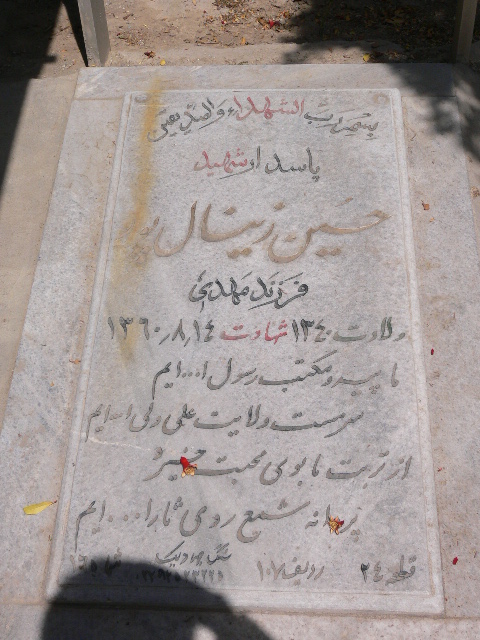 بسم رب الشهداء والصدیقین
پاسدار شهید
حسین زینال پور
فرزند مهدی
ولادت ۱۳۴۰ شهادت ۱۳۶۰٫۸٫۱۴
ما پیرو مکتب رسول ا... ایم
سرمست ولایت علی ولی ا... ایم
از تربت ما بوی محبت خیزد
پروانه شمع روی ثارا... ایم
قطعه ۲۴ ردیف ۱۰۷ شماره